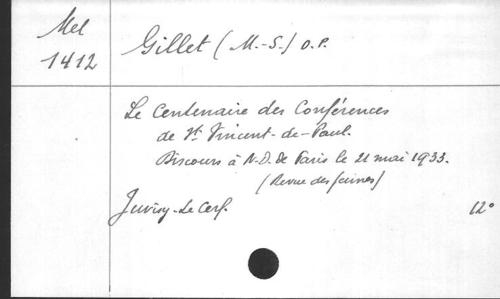 Mel
1412
Gillet (M.-S.) O.P.
Le Centenaire des Conférences
de St Vincent-de-Paul.
Discours à N.D. de Paris le 21 mai 1933.
(Revue des jeunes)
Juvisy-Le Cerf.
12°